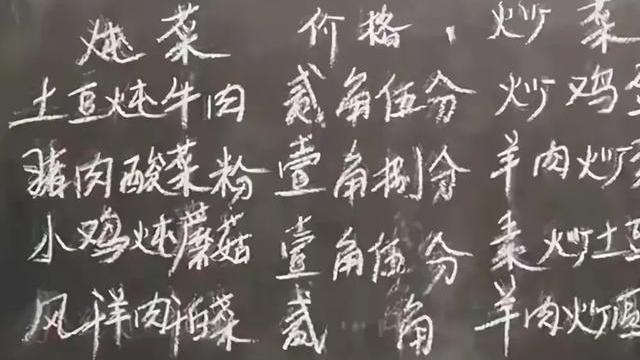 炖菜 价格 炒菜
土豆炖牛肉 贰角伍分 炒鸡
猪肉酸菜粉 壹角捌分 羊肉炒
小鸡炖蘑菇 壹角伍分 素炒土豆
风洋肉泊菜 贰角 羊肉炒